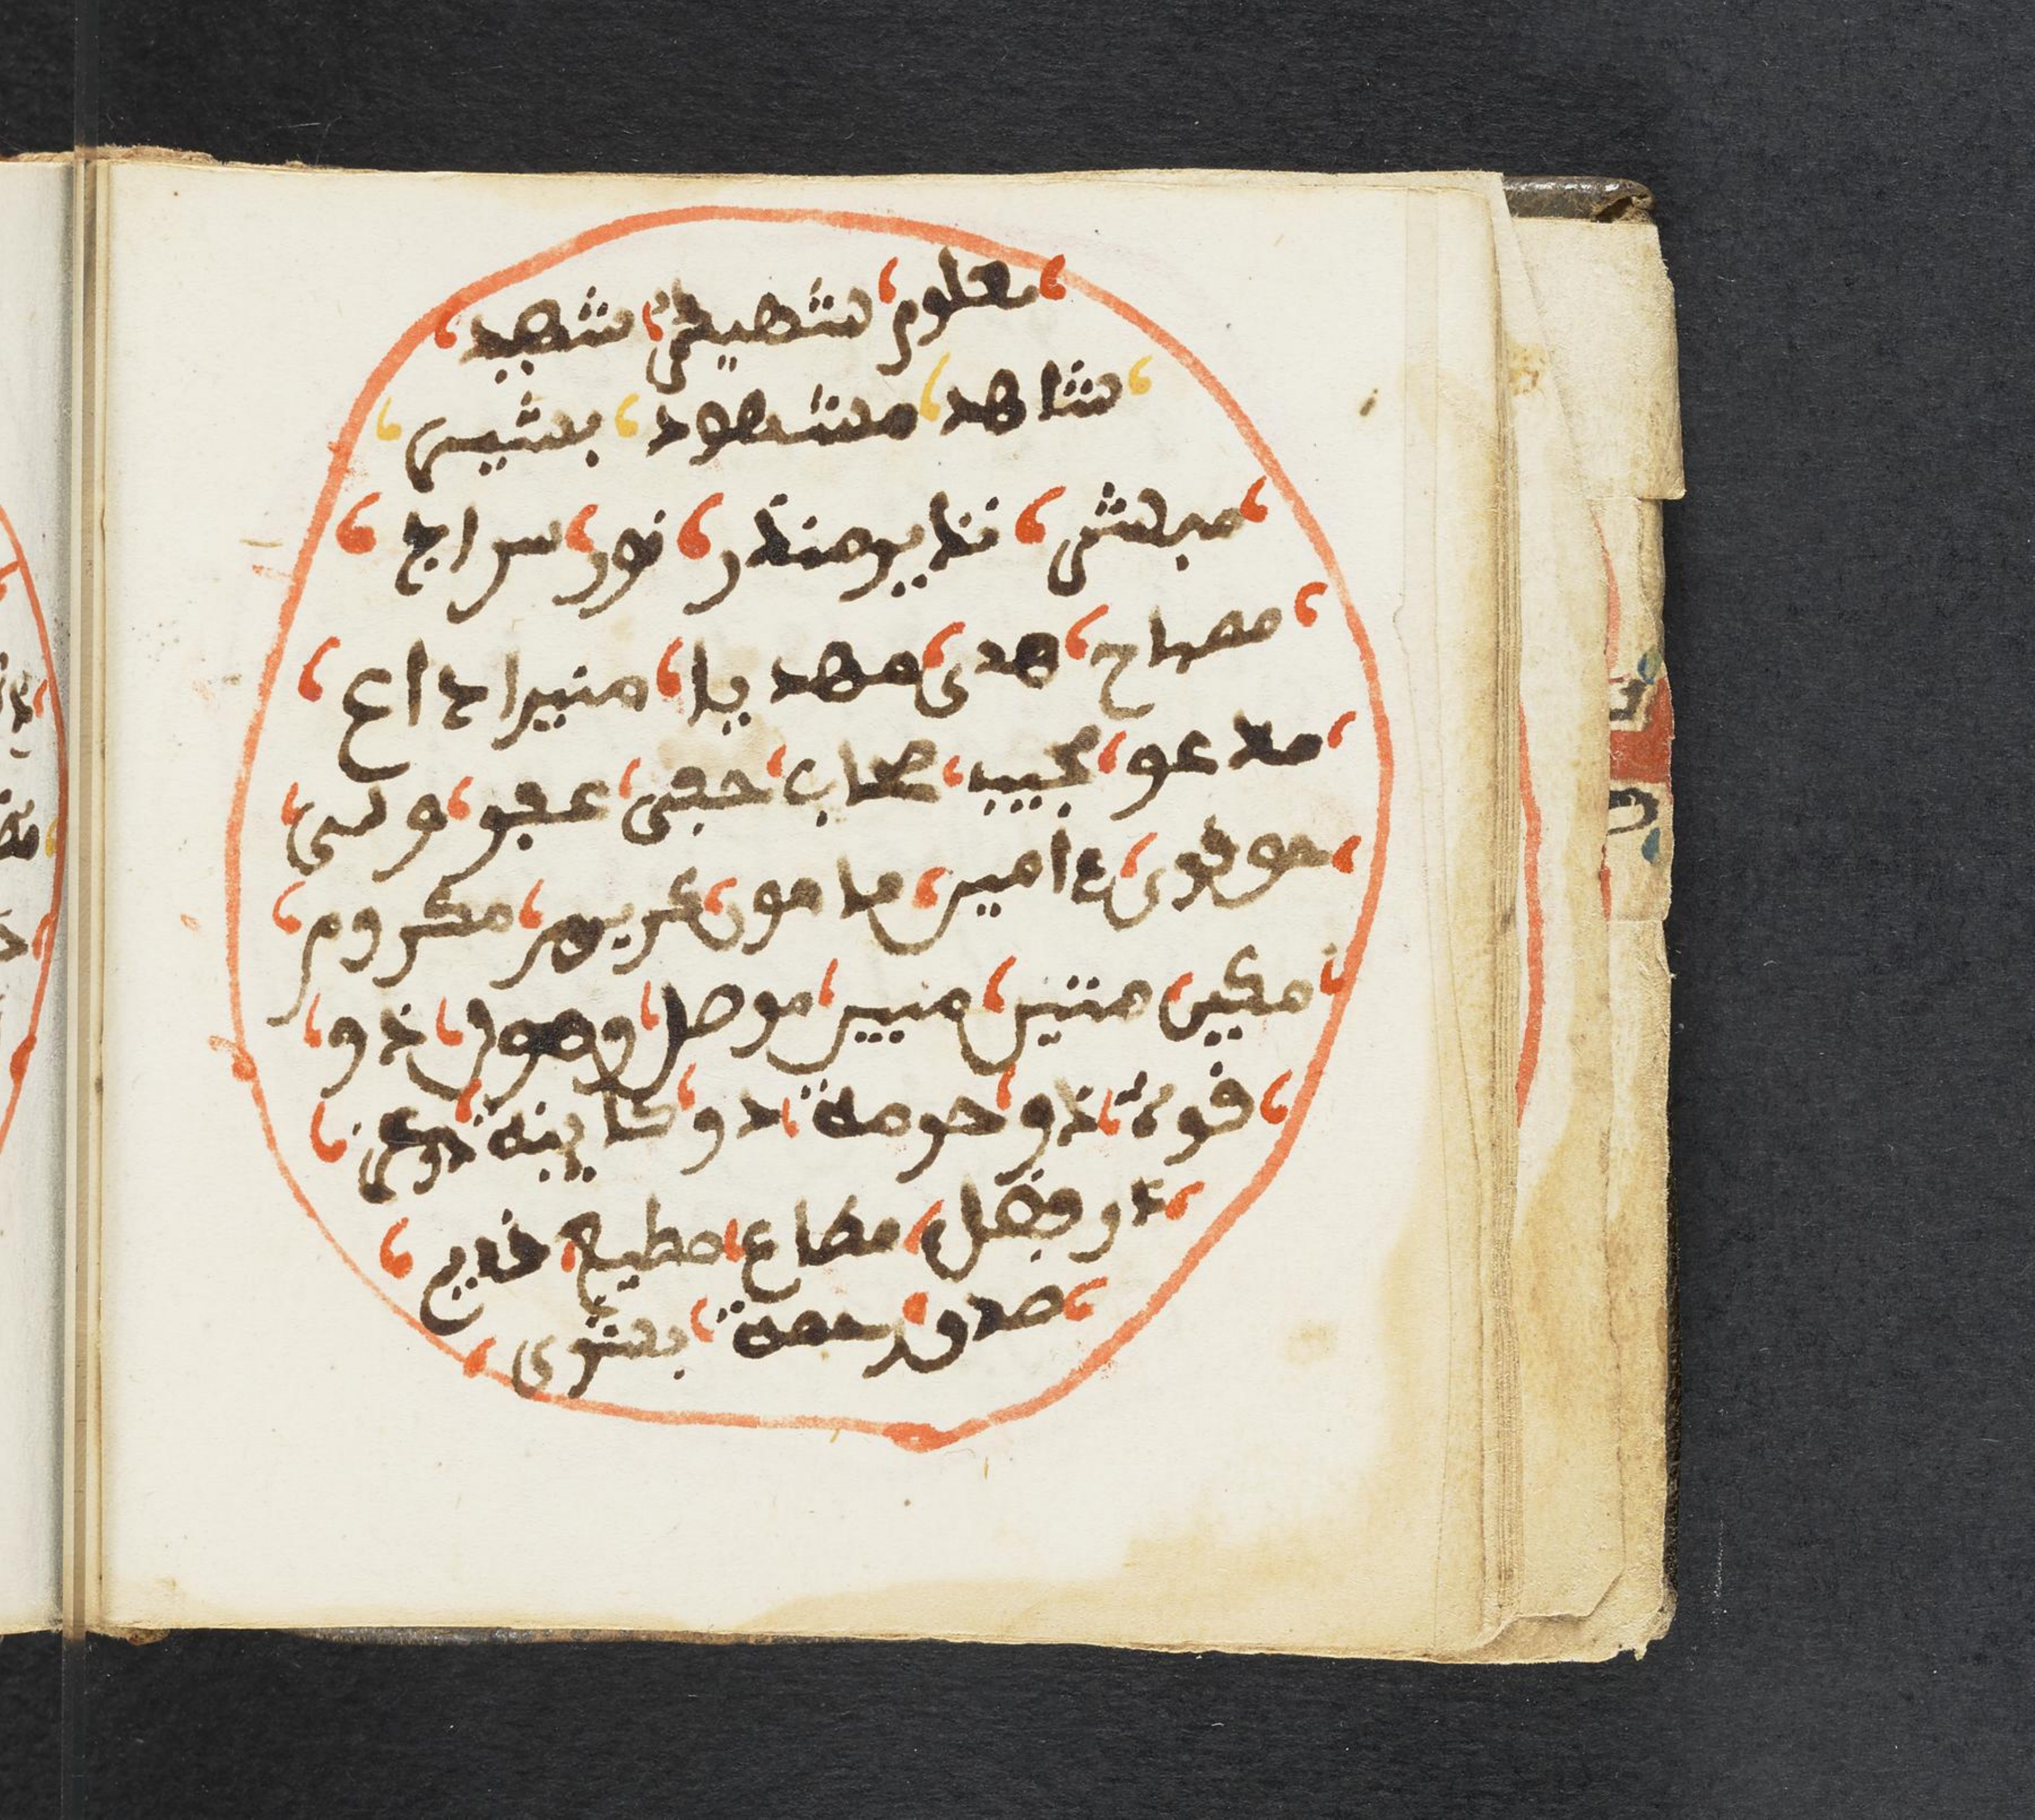 معلوم شهير شهيد
شاهد مشهود بشير
مبشر نذير منذر نور سراج
مصباح هدى مهديا منير اداع
مدعو مجيب مجاب حفى عفو ولى
حق قوى امين مامون كريم مكروم
مكين متين مبين موصل وصول ذو
قوة ذو حرمة ذو مكانة ذو عز
ذو فضل مطاع مطيع قديم
صدق رحمة بشرى